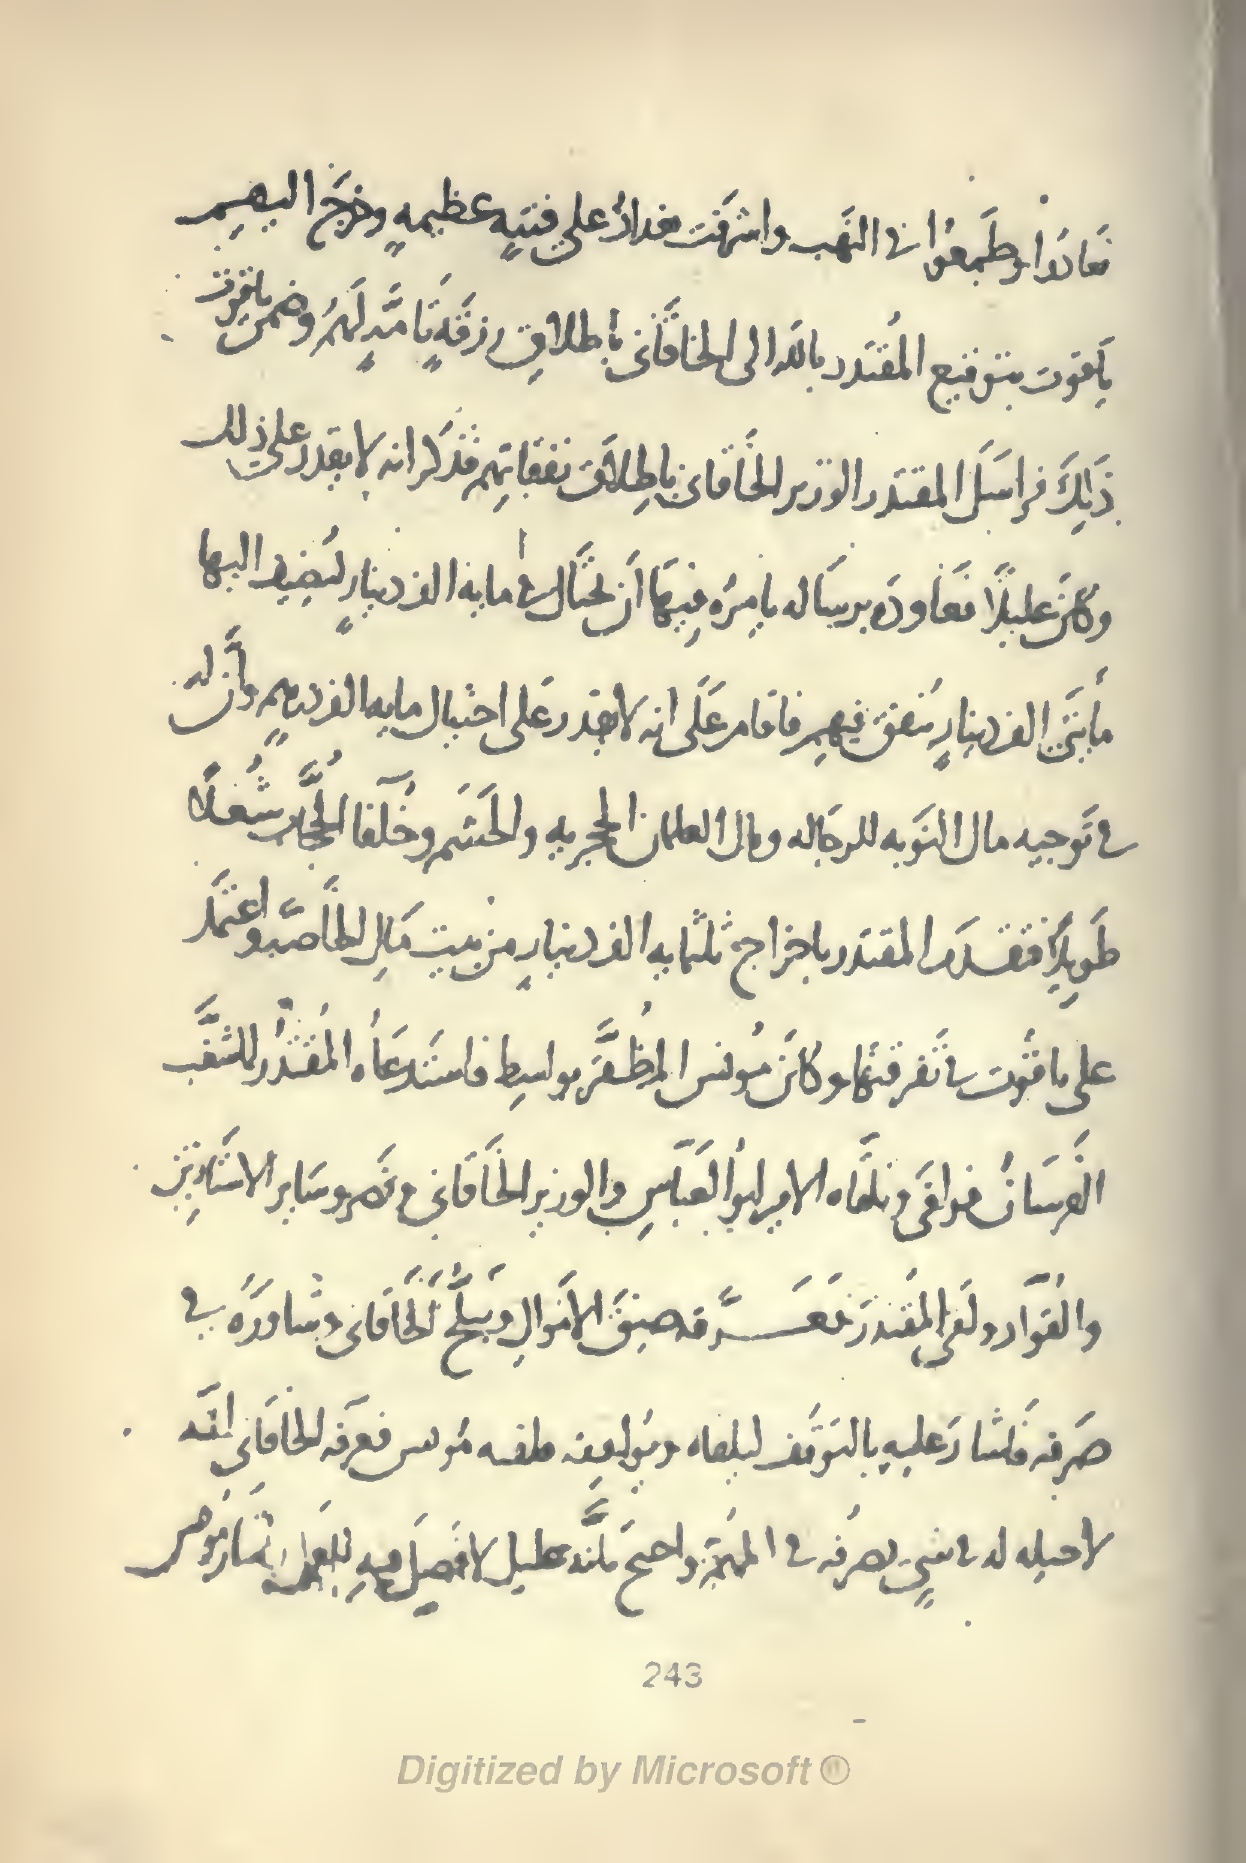 فعادوا وطمعوا في النهب واشرفت بغداد على فتنةٍ عظيمهٍ وخرج اليهم
ياقوت بتوقيع المقتدر بالله الى الخاقاني باطلاق رزقةٍ تامّهٍ لهم وضمن ياقوت
ذلك فراسل المقتدر الوزير الخاقاني باطلاق نفقاتهم فذكر انه لا يقدر على ذلك
وكان عليلًا فعاوده برساله يامره فيها ان يحتال في مايه الف دينارٍ ليضيف اليها
مايتي الف دينارٍ تنفق فيهم فاقام على انه لا يقدر على احتيال مايه الف درهمٍ وأنّ له
في توجيه مال النوبه للرجاله ومال الغلمان الحجريه والحشم وخلفا الحجّاب شغلًا
طويلًا فتقدم المقتدر باخراج ثلثمايه الف دينارٍ من بيت مال الخاصّه واعتمد
على ياقوت في تفرقتها وكان مونس المظفّر بواسط فاستدعاه المقتدر للشغب
الفرسان فوافى وتلقّاه الامير ابو العباس والوزير الخاقاني ونصر وساير الاستاذين
والقوّاد ولقي المقتدر فعرّفه ضيق الاموال وتبلّح الخاقاني وشاوره في
صرفه فاشار عليه بالتوقف ليلقاه ويوافقه فلقيه مونس فعرفه الخاقاني انّه
لا حيله له في شيٍ يصرفه في المهمّ واحتجّ بانّه عليل لا فضل فيه للعمل